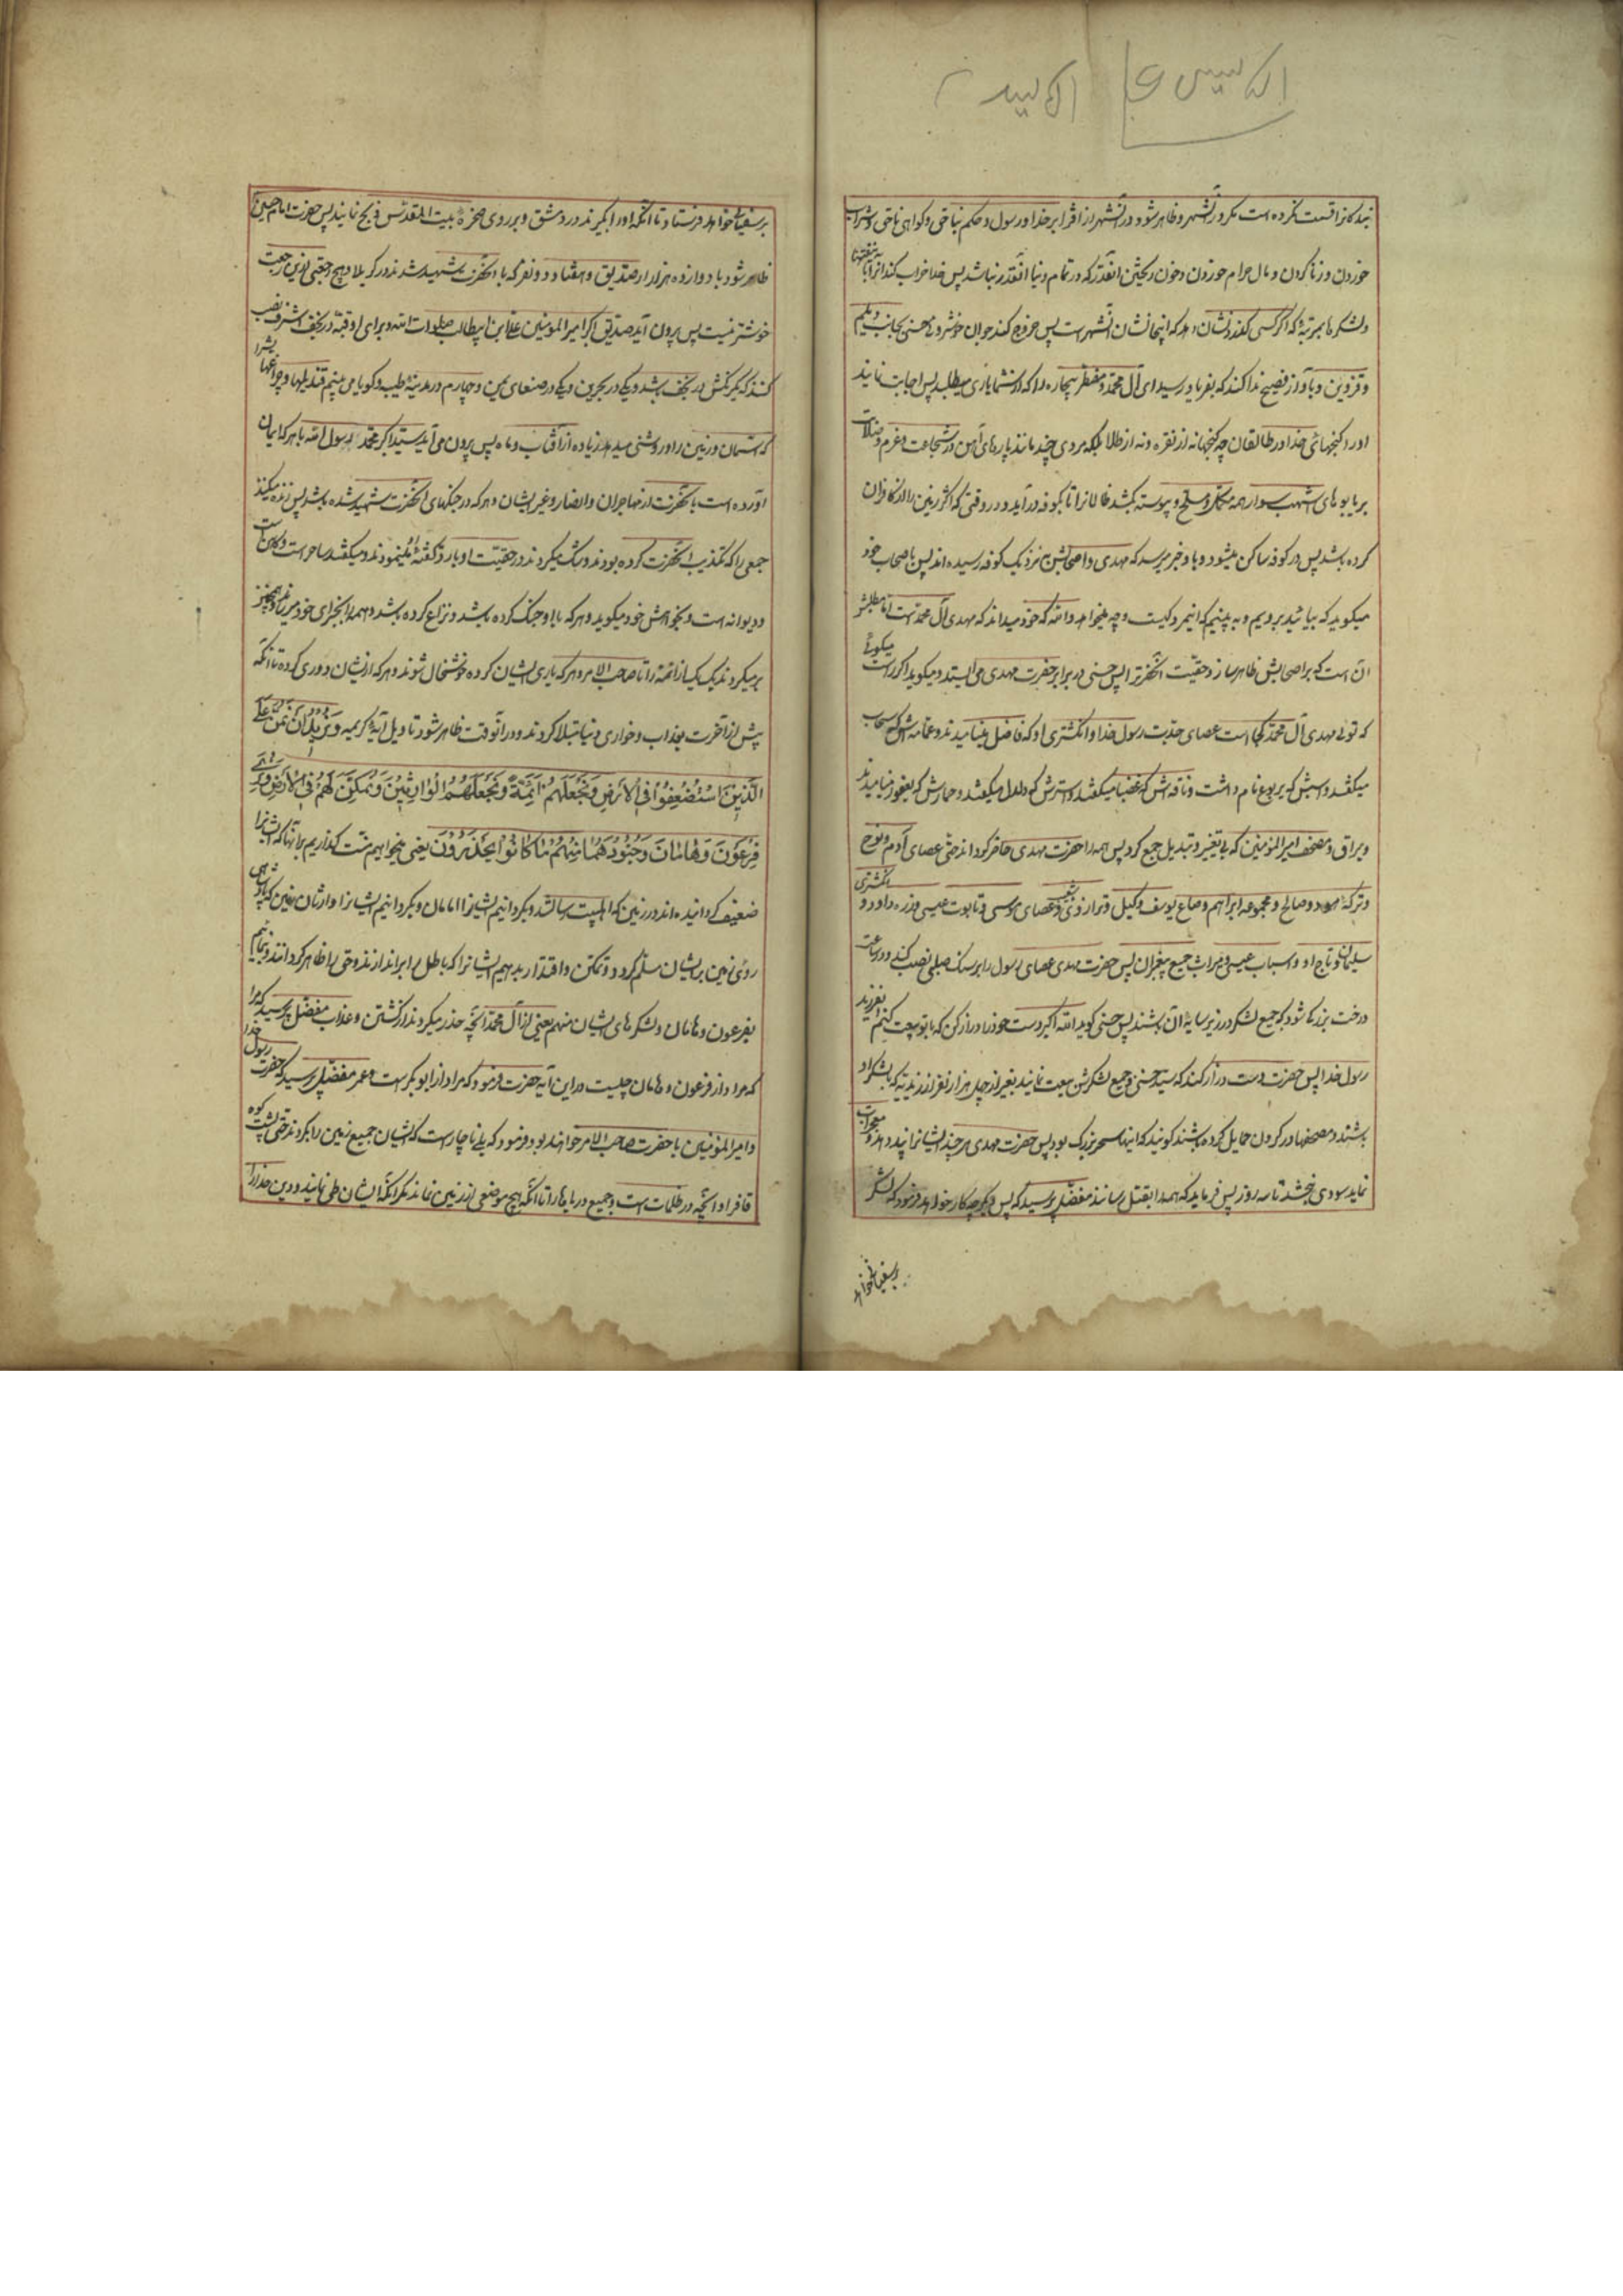 بندکانرا قسمت نکرده است مکر در آنشهر و ظاهر شود در آنشهر از افترا بر خدا و رسول و حکم بناحق و کواهی ناحق و شراب
خوردن و زنا کردن و مال حرام خوردن و خون ریختن آنقدر که در تمام دنیا آنقدر نباشد پس خدا خراب کند آنرا باین فتنها
و لشکرها بمرتبهٔ که اکر کسی کذرد نشان دهد که اینجا نشان آنشهر است پس خروج کند جوان خوشروی حسنی بجانب دیلم
و قزوین و بآواز فصیح ندا کند که بفریاد رسید ای آل محمد مضطر بیچاره را که از شما یاری میطلبد پس اجابت نمایند
اورا کنجهای خدا در طالقان چه کنجها نه از نقره و نه از طلا بلکه مردی چند مانند پارهای آهن در شجاعت و عزم و صلابت
بر یابوهای اشهب سوار همه مکمل و مسلح و پیوسته بکشد ظالمانرا تا بکوفه درآید در وقتی که اکثر زمین را از کافران
کرده باشد پس در کوفه ساکن میشود و باو خبر میرسد که مهدی و اصحابش نزدیک کوفه رسیده اند پس باصحاب خود
میکوید که بیائید برویم و به بینیم که اینمرد کیست و چه میخواهد و الله که خود میداند که مهدی آل محمد است اما مطلبش
آن است که بر اصحابش ظاهر سازد حقیت آنحضرترا پس حسنی در برابر حضرت مهدی می ایستد و میکوید اکر راست میکوئی
که توئی مهدی آل محمد کجا است عصای جدت رسول خدا و انکشتری او که فاضل مینامیدند و عمامه اش که سحاب
میکفتند و اسبش که یربوع نام داشت و ناقه اش که غضبا میکفتند و استرش که دلدل میکفتند و حمارش که یعفور مینامیدند
و براق و مصحف امیرالمؤمنین که بی تغییر و تبدیل جمع کرد پس همه را حضرت مهدی حاضر کرداند حتی عصای آدم و نوح
و ترکهٔ هود و صالح و مجموعه ابراهیم و صاع یوسف و کیل و ترازوی شعیب و عصای موسی و تابوت عیسی و زره داود و انکشتری
سلیمان و تاج او و اسباب عیسی و میراث جمیع پیغمبران پس حضرت مهدی عصای رسول را بر سنک صلبی نصب کند و در ساعت
درخت بزرکی شود که جمیع لشکر در زیر سایهٔ آن باشند پس حسنی کوید الله اکبر دست خود را دراز کن که با تو بیعت کنم ای فرزند
رسول خدا پس حضرت دست دراز کند که سید حسنی و جمیع لشکرش بیعت نمایند بغیر از چهل هزار نفر از زیدیه که با لشکر او
باشند و مصحفها در کردن حمایل کرده باشند کویند که اینها سحر بزرک بود پس حضرت مهدی هر چند ایشانرا پند دهد و معجزات
نماید سودی نبخشد تا سه روز پس فرماید که همه را بقتل رسانند مفضل پرسید که پس دیکر چه کار خواهد فرمود که لشکر
بر سفیانی خواهد
بر سفیانی خواهد فرستاد تا آنکه اورا بکیرند در دمشق و بر روی صخره بیت المقدس ذبح نمایند پس حضرت امام حسین
ظاهر شود با دوازده هزار صدیق و هفتاد و دو نفر که با آنحضرت شهید شدند در کربلا و هیچ رجعتی از این رجعت
خوشتر نیست پس بیرون آید صدیق اکبر امیرالمؤمنین علی ابن ابیطالب صلوات الله و برای او قبه در نجف اشرف نصب
کنند که یک رکنش در نجف باشد و یکی در بحرین و یکی در صنعای یمن و چهارم در مدینهٔ طیبه و کویا می بینم قندیلها و چراغهایشرا
که آسمان و زمین را روشنی میدهد زیاده از آفتاب و ماه پس بیرون می آید سید اکبر محمد رسول الله با هر که ایمان
آورده است بآنحضرت از مهاجران و انصار و غیر ایشان و هر که در جنکهای آنحضرت شهید شده باشد پس زنده میکنند
جمعی را که تکذیب آنحضرت کرده بودند و شک میکردند در حقیت او یا رد کفتهٔ او مینمودند و میکفتند ساحر است و کاهن است
و دیوانه است و بخواهش خود میکوید و هر که با او جنک کرده باشد و نزاع کرده باشد و همه را بجزای خود میرسانند و همچنین
بر میکردند یک یک از ائمه را تا صاحب الامر و هر که یاری ایشان کرده خوشحال شوند و هر که از ایشان دوری کرده تا آنکه
پیش از آخرت بعذاب و خواری دنیا مبتلا کردند و در آنوقت ظاهر شود تاویل آیهٔ کریمه وَنُرِيدُ أَنْ نَمُنَّ عَلَى
الَّذِينَ اسْتُضْعِفُوا فِي الْأَرْضِ وَنَجْعَلَهُمْ أَئِمَّةً وَنَجْعَلَهُمُ الْوَارِثِينَ وَنُمَكِّنَ لَهُمْ فِي الْأَرْضِ وَنُرِيَ
فِرْعَوْنَ وَهَامَانَ وَجُنُودَهُمَا مِنْهُمْ مَا كَانُوا يَحْذَرُونَ یعنی میخواهیم منت کذاریم بر آنها که ایشانرا
ضعیف کردانیده اند در زمین که اهلبیت رسالتند و بکردانیم ایشانرا امامان و بکردانیم ایشانرا وارثان زمین که پادشاهی
روی زمین بر ایشان مسلم کردد و تمکن و اقتدار بدهیم ایشانرا که باطل را براندازند و حق را ظاهر کردانند و بنمائیم
بفرعون و هامان و لشکرهای ایشان منهم یعنی از آل محمد آنچه حذر میکردند از کشتن و عذاب مفضل پرسید که مرا
که مراد از فرعون و هامان چیست در این آیه حضرت فرمود که مراد از ابوبکر است و عمر مفضل پرسید که حضرت رسول خدا
و امیرالمؤمنین با حضرت صاحب الامر خواهند بود فرمود که بلی ناچار است که ایشان جمیع زمین را بکردند حتی پشت کوه
قاف را و آنچه در ظلمات است و جمیع دریاها را تا آنکه هیچ موضعی از زمین نماند مکر آنکه ایشان طی نمایند و دین خدا را